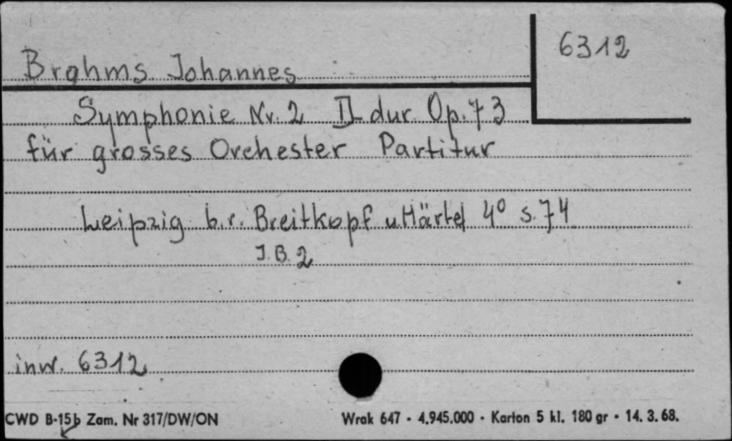 6312
Brahms Johannes
Symphonie Nr. 2 D-dur Op. 73
für grosses Orchester Partitur
Leipzig b.r. Breitkopf u. Härtel 4° s. 74
J.B. 2
inw. 6312
CWD B-15b Zam. Nr 317/DW/ON
Wrak 647 - 4.945.000 - Karton 5 kl. 180 gr - 14. 3. 68.